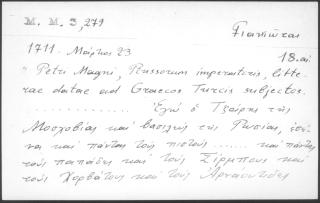 M. M. 3,279
Γιαννιώται
1711. Μάρτιος 23
18. αι.
"Petri Magni, Russorum imperatoris, litte-
rae datae ad Graecos Turcis subjectos.
.............. Ἐγὼ ὁ Τζάρης τῆς
Μοσχοβίας καὶ βασιλεὺς τῆς Ρωσίας,
να καὶ πάντας τοὺς πιστοὺς ....... καὶ πάντας
τοὺς παπάδες καὶ τοὺς Σέρμπους καὶ
τοὺς Χορβάτους καὶ τοὺς Ἀρναουτάδες